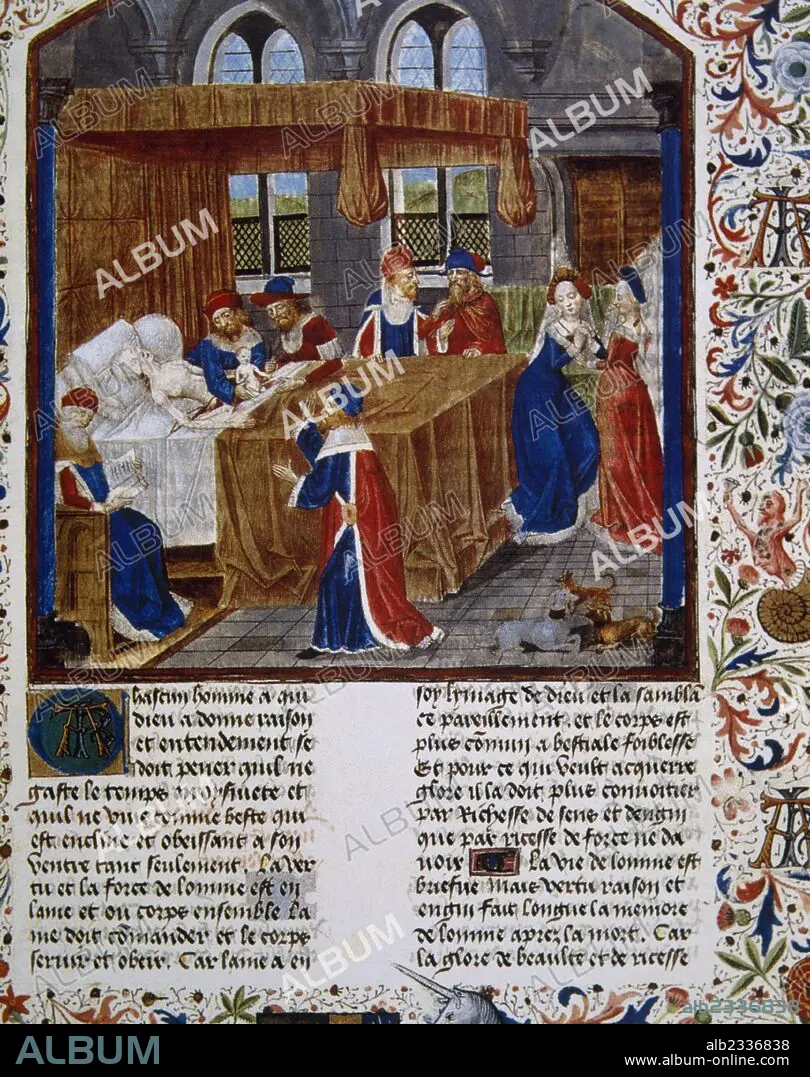 hascun homme a qui
dieu a donne raison
et entendement se
doit pener quil ne
gaste le temps en oysiuete et
quil ne viue comme beste qui
est encline et obeissant a son
ventre tant seulement. La ver
tu et la force de lomme est en
lame et ou corps ensemble La
me doit cōmander et le corps
seruir et obeir. Car lame a en
soy lymage de dieu et la sambla
ce pareillement. et le corps est
plus cōmun a bestiale foiblesse
Et pour ce qui veult acquerre
glore il la doit plus conuoitier
par Richesse de sens et dengin
que par ricesse de force ne da
uoir La vie de lomme est
briefue mais vertu raison et
engin fait longue la memore
de lomme aprez la mort. Car
la glore de beaulte et de ricesse
ALBUM
alb2336838
www.album-online.com